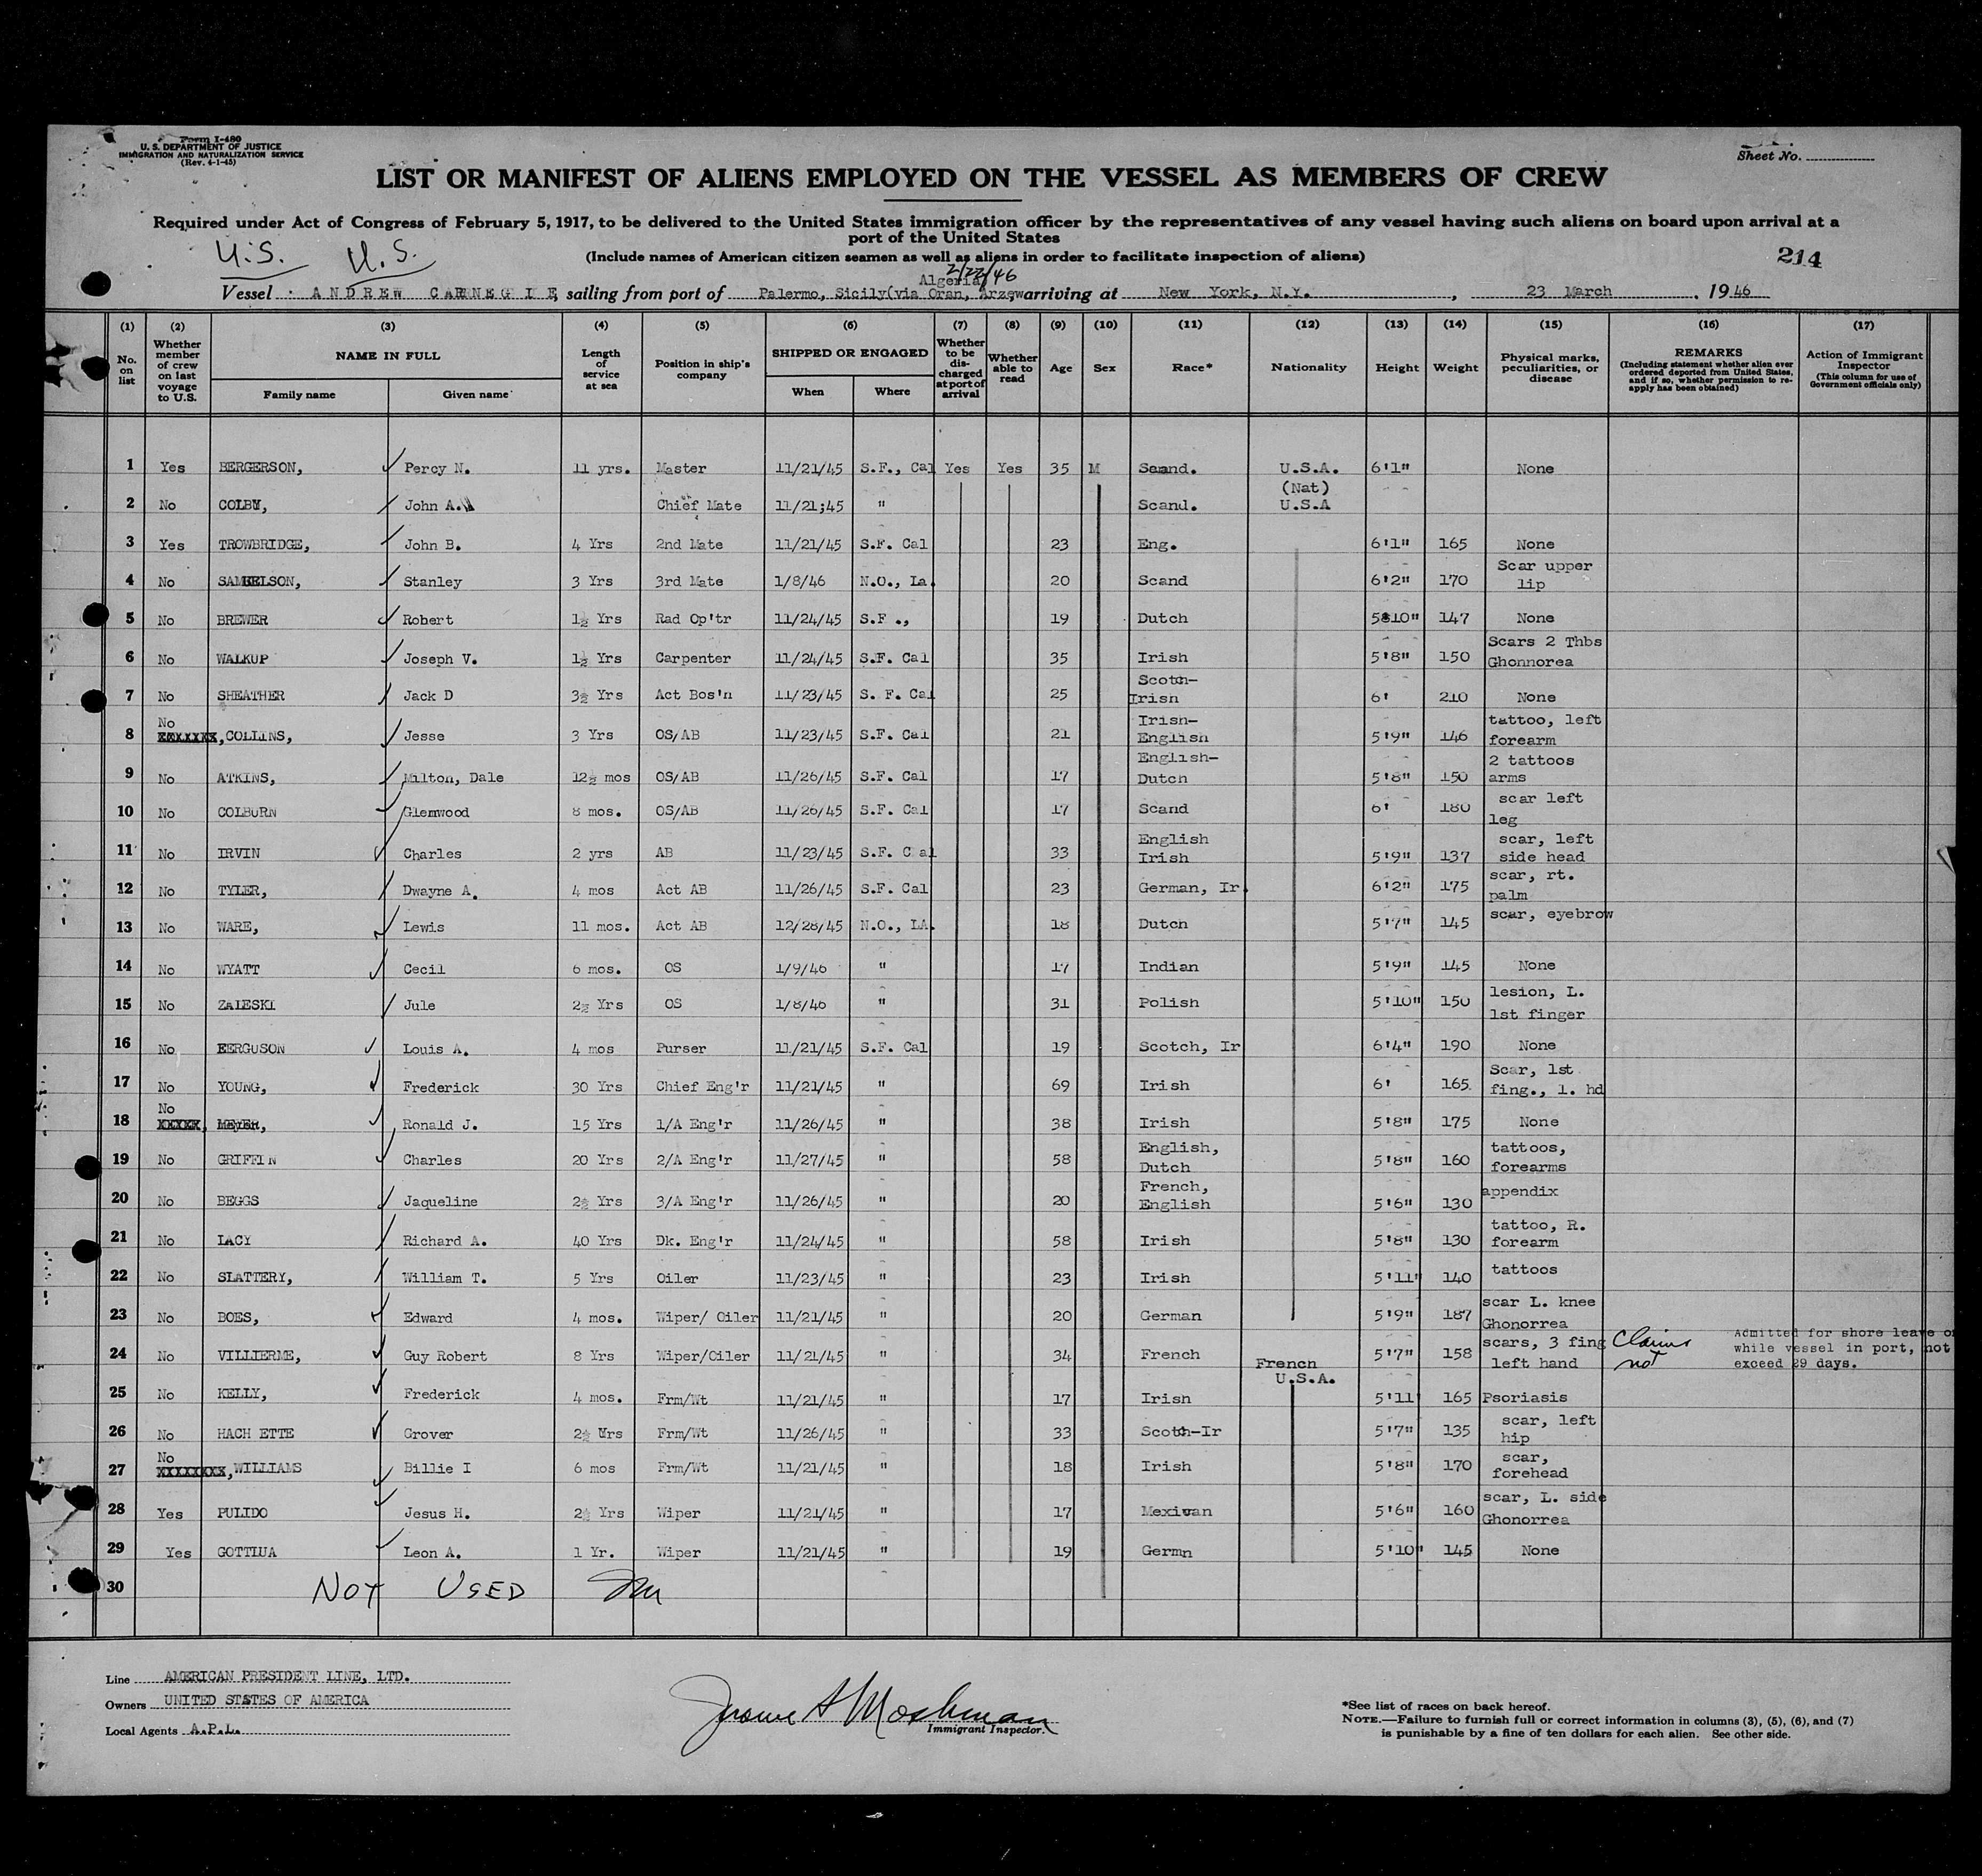 Form I-480
U. S. DEPARTMENT OF JUSTICE
IMMIGRATION AND NATURALIZATION SERVICE
(Rev. 4-1-45)
Sheet No.
LIST OR MANIFEST OF ALIENS EMPLOYED ON THE VESSEL AS MEMBERS OF CREW
Required under Act of Congress of February 5, 1917, to be delivered to the United States immigration officer by the representatives of any vessel having such aliens on board upon arrival at a
port of the United States
U.S. U.S.
(Include names of American citizen seamen as well as aliens in order to facilitate inspection of aliens)
214
2/22/46
Algeria
Vessel ANDREW CARNEGIE, sailing from port of Palermo, Sicily(via Oran, Arzew arriving at New York, N.Y., 23 March, 1946
(1) (2) (3) (4) (5) (6) (7) (8) (9) (10) (11) (12) (13) (14) (15) (16) (17)
No. on list
Whether member of crew on last voyage to U.S.
NAME IN FULL
Family name Given name
Length of service at sea
Position in ship's company
SHIPPED OR ENGAGED
When Where
Whether to be discharged at port of arrival
Whether able to read
Age
Sex
Race*
Nationality
Height
Weight
Physical marks, peculiarities, or disease
REMARKS
(Including statement whether alien ever ordered deported from United States, and if so, whether permission to re-apply has been obtained)
Action of Immigrant Inspector
(This column for use of Government officials only)
1 Yes BERGERSON, Percy N. 11 yrs. Master 11/21/45 S.F., Cal Yes Yes 35 M Scand. U.S.A. 6'1" None
(Nat)
2 No COLBY, John A. Chief Mate 11/21;45 " Scand. U.S.A
3 Yes TROWBRIDGE, John B. 4 Yrs 2nd Mate 11/21/45 S.F. Cal 23 Eng. 6'1" 165 None
4 No SAMUELSON, Stanley 3 Yrs 3rd Mate 1/8/46 N.O., La. 20 Scand 6'2" 170 Scar upper lip
5 No BREWER Robert 1½ Yrs Rad Op'tr 11/24/45 S.F ., 19 Dutch 5'10" 147 None
6 No WALKUP Joseph V. 1½ Yrs Carpenter 11/24/45 S.F. Cal 35 Irish 5'8" 150 Scars 2 Thbs Ghonnorea
7 No SHEATHER Jack D 3½ Yrs Act Bos'n 11/23/45 S. F. Cal 25 Scotch-Irish 6' 210 None
8 No XXXXXXX, COLLINS, Jesse 3 Yrs OS/AB 11/23/45 S.F. Cal 21 Irish-English 5'9" 146 tattoo, left forearm
9 No ATKINS, Milton, Dale 12½ mos OS/AB 11/26/45 S.F. Cal 17 English-Dutch 5'8" 150 2 tattoos arms
10 No COLBURN Glemwood 8 mos. OS/AB 11/26/45 S.F. Cal 17 Scand 6' 180 scar left leg
11 No IRVIN Charles 2 yrs AB 11/23/45 S.F. Cal 33 English Irish 5'9" 137 scar, left side head
12 No TYLER, Dwayne A. 4 mos Act AB 11/26/45 S.F. Cal 23 German, Ir. 6'2" 175 scar, rt. palm
13 No WARE, Lewis 11 mos. Act AB 12/28/45 N.O., LA. 18 Dutch 5'7" 145 scar, eyebrow
14 No WYATT Cecil 6 mos. OS 1/9/46 " 17 Indian 5'9" 145 None
15 No ZALESKI Jule 2½ Yrs OS 1/8/46 " 31 Polish 5'10" 150 lesion, L. 1st finger
16 No FERGUSON Louis A. 4 mos Purser 11/21/45 S.F. Cal 19 Scotch, Ir 6'4" 190 None
17 No YOUNG, Frederick 30 Yrs Chief Eng'r 11/21/45 " 69 Irish 6' 165 Scar, 1st fing., l. hd
18 No XXXXX, MEYER, Ronald J. 15 Yrs 1/A Eng'r 11/26/45 " 38 Irish 5'8" 175 None
19 No GRIFFIN Charles 20 Yrs 2/A Eng'r 11/27/45 " 58 English, Dutch 5'8" 160 tattoos, forearms
20 No BEGGS Jaqueline 2½ Yrs 3/A Eng'r 11/26/45 " 20 French, English 5'6" 130 appendix
21 No LACY Richard A. 40 Yrs Dk. Eng'r 11/24/45 " 58 Irish 5'8" 130 tattoo, R. forearm
22 No SLATTERY, William T. 5 Yrs Oiler 11/23/45 " 23 Irish 5'11" 140 tattoos
23 No BOES, Edward 4 mos. Wiper/ Oiler 11/21/45 " 20 German 5'9" 187 scar L. knee Ghonorrea
24 No VILLIERME, Guy Robert 8 Yrs Wiper/Oiler 11/21/45 " 34 French French 5'7" 158 scars, 3 fing left hand Claims not Admitted for shore leave on while vessel in port, not exceed 29 days.
25 No KELLY, Frederick 4 mos. Frm/Wt 11/21/45 " 17 Irish U.S.A. 5'11 165 Psoriasis
26 No HACH ETTE Grover 2½ Yrs Frm/Wt 11/26/45 " 33 Scotch-Ir 5'7" 135 scar, left hip
27 No XXXXXXXX, WILLIAMS Billie I 6 mos Frm/Wt 11/21/45 " 18 Irish 5'8" 170 scar, forehead
28 Yes PULIDO Jesus H. 2½ Yrs Wiper 11/21/45 " 17 Mexican 5'6" 160 scar, L. side Ghonorrea
29 Yes GOTTLUA Leon A. 1 Yr. Wiper 11/21/45 " 19 Germn 5'10" 145 None
30 NOT USED
Line AMERICAN PRESIDENT LINE, LTD.
Owners UNITED STATES OF AMERICA
Local Agents A.P.L.
Jerome A Moshman
Immigrant Inspector.
*See list of races on back hereof.
NOTE.—Failure to furnish full or correct information in columns (3), (5), (6), and (7)
is punishable by a fine of ten dollars for each alien. See other side.